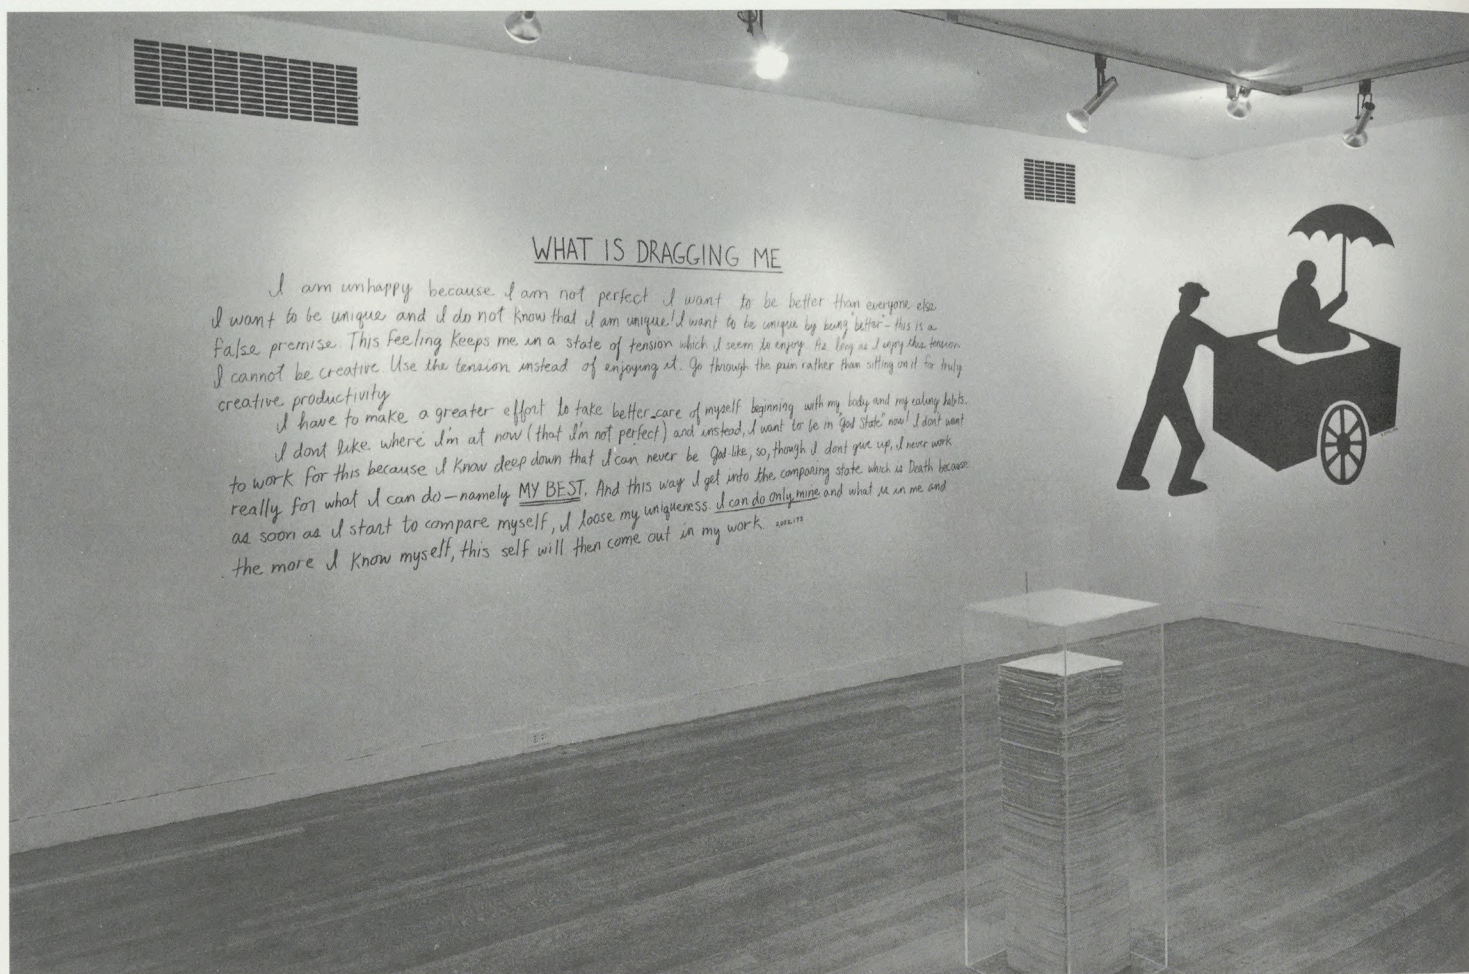 WHAT IS DRAGGING ME
I am unhappy because I am not perfect I want to be better than everyone else.
I want to be unique and I do not know that I am unique! I want to be unique by being "better" – this is a
false premise. This feeling keeps me in a state of tension which I seem to enjoy. As long as I enjoy this tension
I cannot be creative. Use the tension instead of enjoying it. Go through the pain rather than sitting on it for truly
creative productivity
I have to make a greater effort to take better care of myself beginning with my body and my eating habits.
I dont like where I'm at now (that I'm not perfect) and instead, I want to be in "God State" now! I dont want
to work for this because I know deep down that I can never be God-like, so, though I dont give up, I never work
really for what I can do – namely MY BEST. And this way I get into the comparing state which is Death because
as soon as I start to compare myself, I loose my uniqueness. I can do only mine and what is in me and
the more I know myself, this self will then come out in my work.